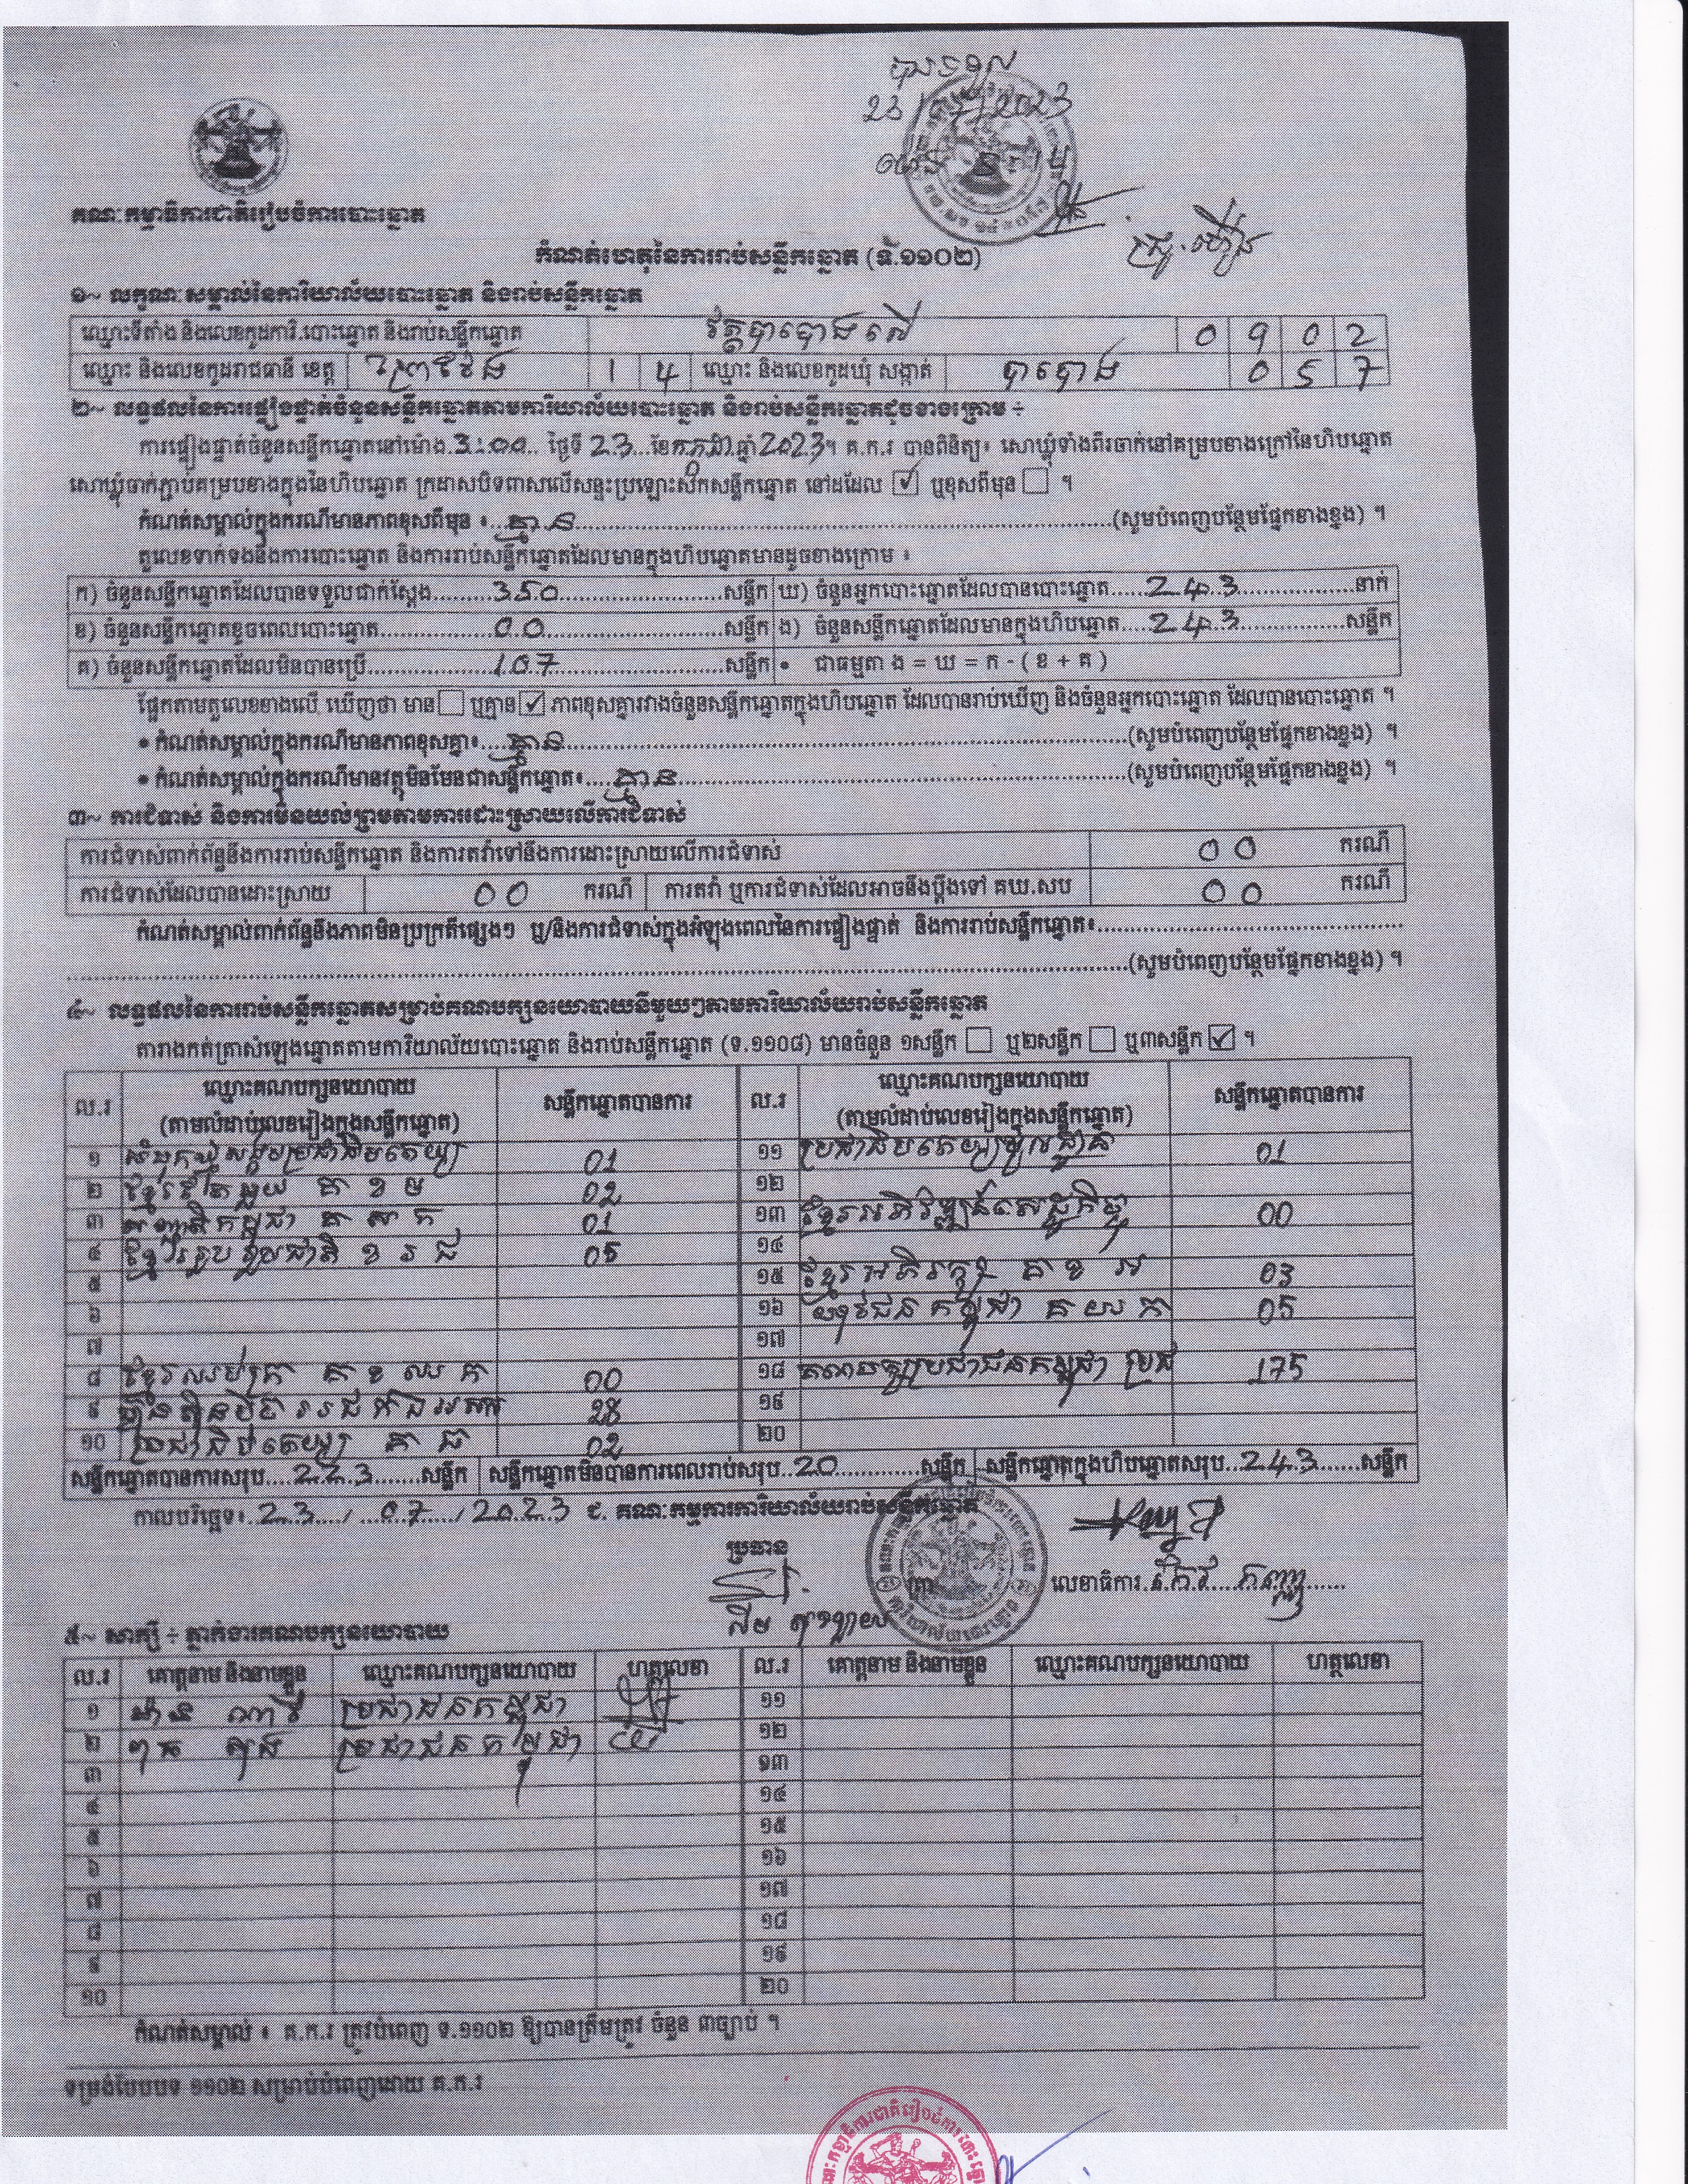 23/07/2023
គណៈកម្មាធិការជាតិរៀបចំការបោះឆ្នោត
កំណត់ហេតុនៃការរាប់សន្លឹកឆ្នោត (ទ.១១០២)
១~ លក្ខណៈសម្គាល់នៃការិយាល័យបោះឆ្នោត និងរាប់សន្លឹកឆ្នោត
ឈ្មោះទីតាំង និងលេខកូដការិ.បោះឆ្នោត និងរាប់សន្លឹកឆ្នោត វត្តបាបោងលើ 0 9 0 2
ឈ្មោះ និងលេខកូដរាជធានី ខេត្ត ព្រៃវែង 1 4 ឈ្មោះ និងលេខកូដឃុំ សង្កាត់ បាបោង 0 5 7
២~ លទ្ធផលនៃការផ្ទៀងផ្ទាត់ចំនួនសន្លឹកឆ្នោតតាមការិយាល័យបោះឆ្នោត និងរាប់សន្លឹកឆ្នោតដូចខាងក្រោម ÷
ការផ្ទៀងផ្ទាត់ចំនួនសន្លឹកឆ្នោតនៅម៉ោង 3:00 ថ្ងៃទី 23 ខែកក្កដា ឆ្នាំ 2023។ គ.ក.រ បានពិនិត្យ៖ សោឃ្លុំទាំងពីរចាក់នៅគម្របខាងក្រៅនៃហិបឆ្នោត
សោឃ្លុំចាក់ភ្ជាប់គម្របខាងក្នុងនៃហិបឆ្នោត ក្រដាសបិទពាសលើសន្ទះប្រឡោះសិកសន្លឹកឆ្នោត នៅដដែល ☑ ឬខុសពីមុន ☐ ។
កំណត់សម្គាល់ក្នុងករណីមានភាពខុសពីមុន ៖ គ្មាន (សូមបំពេញបន្ថែមផ្នែកខាងខ្នង) ។
តួលេខទាក់ទងនឹងការបោះឆ្នោត និងការរាប់សន្លឹកឆ្នោតដែលមានក្នុងហិបឆ្នោតមានដូចខាងក្រោម ៖
ក) ចំនួនសន្លឹកឆ្នោតដែលបានទទួលជាក់ស្តែង 350 សន្លឹក ឃ) ចំនួនអ្នកបោះឆ្នោតដែលបានបោះឆ្នោត 243 នាក់
ខ) ចំនួនសន្លឹកឆ្នោតខូចពេលបោះឆ្នោត 00 សន្លឹក ង) ចំនួនសន្លឹកឆ្នោតដែលមានក្នុងហិបឆ្នោត 243 សន្លឹក
គ) ចំនួនសន្លឹកឆ្នោតដែលមិនបានប្រើ 107 សន្លឹក • ជាធម្មតា ង = ឃ = ក - ( ខ + គ )
ផ្អែកតាមតួលេខខាងលើ ឃើញថា មាន ☐ ឬគ្មាន ☑ ភាពខុសគ្នារវាងចំនួនសន្លឹកឆ្នោតក្នុងហិបឆ្នោត ដែលបានរាប់ឃើញ និងចំនួនអ្នកបោះឆ្នោត ដែលបានបោះឆ្នោត ។
• កំណត់សម្គាល់ក្នុងករណីមានភាពខុសគ្នា៖ គ្មាន (សូមបំពេញបន្ថែមផ្នែកខាងខ្នង) ។
• កំណត់សម្គាល់ក្នុងករណីមានវត្ថុមិនមែនជាសន្លឹកឆ្នោត៖ គ្មាន (សូមបំពេញបន្ថែមផ្នែកខាងខ្នង) ។
៣~ ការជំទាស់ និងការមិនយល់ព្រមតាមការដោះស្រាយលើការជំទាស់
ការជំទាស់ពាក់ព័ន្ធនឹងការរាប់សន្លឹកឆ្នោត និងការតវ៉ាទៅនឹងការដោះស្រាយលើការជំទាស់ 00 ករណី
ការជំទាស់ដែលបានដោះស្រាយ 00 ករណី ការតវ៉ា ឬការជំទាស់ដែលអាចនឹងប្តឹងទៅ គឃ.សប 00 ករណី
កំណត់សម្គាល់ពាក់ព័ន្ធនឹងភាពមិនប្រក្រតីផ្សេងៗ ឬ/និងការជំទាស់ក្នុងអំឡុងពេលនៃការផ្ទៀងផ្ទាត់ និងការរាប់សន្លឹកឆ្នោត៖
(សូមបំពេញបន្ថែមផ្នែកខាងខ្នង) ។
៤~ លទ្ធផលនៃការរាប់សន្លឹកឆ្នោតសម្រាប់គណបក្សនយោបាយនីមួយៗតាមការិយាល័យរាប់សន្លឹកឆ្នោត
តារាងកត់ត្រាសំឡេងឆ្នោតតាមការិយាល័យបោះឆ្នោត និងរាប់សន្លឹកឆ្នោត (ទ.១១០៨) មានចំនួន ១សន្លឹក ☐ ឬ២សន្លឹក ☐ ឬ៣សន្លឹក ☑ ។
ល.រ ឈ្មោះគណបក្សនយោបាយ (តាមលំដាប់លេខរៀងក្នុងសន្លឹកឆ្នោត) សន្លឹកឆ្នោតបានការ ល.រ ឈ្មោះគណបក្សនយោបាយ (តាមលំដាប់លេខរៀងក្នុងសន្លឹកឆ្នោត) សន្លឹកឆ្នោតបានការ
១ សំបុកឃ្មុំសង្គមប្រជាធិបតេយ្យ 01 ១១ ប្រជាធិបតេយ្យមូលដ្ឋាន 01
២ ខ្មែរជាតិតែមួយ 02 ១២
៣ 01 ១៣ ខ្មែរអភិវឌ្ឍន៍សេដ្ឋកិច្ច 00
៤ ខ្មែររួបរួមជាតិ ខ រ ជ 05 ១៤
៥ ១៥ ខ្មែរអភិរក្ស គ ខ អ 03
៦ ១៦ យុវជនកម្ពុជា គ យ ក 05
៧ ១៧
៨ ខ្មែរឈប់ក្រ គ ខ ឈ ក 00 ១៨ គណបក្សប្រជាជនកម្ពុជា 175
៩ ហ្វ៊ុនស៊ិនប៉ិច 28 ១៩
១០ ប្រជាធិបតេយ្យ 02 ២០
សន្លឹកឆ្នោតបានការសរុប 223 សន្លឹក សន្លឹកឆ្នោតមិនបានការពេលរាប់សរុប 20 សន្លឹក សន្លឹកឆ្នោតក្នុងហិបឆ្នោតសរុប 243 សន្លឹក
កាលបរិច្ឆេទ៖ 23 / 07 / 2023 ៩. គណៈកម្មការការិយាល័យរាប់សន្លឹកឆ្នោត
ប្រធាន
លេខាធិការ
៥~ សាក្សី ÷ ភ្នាក់ងារគណបក្សនយោបាយ
ល.រ គោត្តនាម និងនាមខ្លួន ឈ្មោះគណបក្សនយោបាយ ហត្ថលេខា ល.រ គោត្តនាម និងនាមខ្លួន ឈ្មោះគណបក្សនយោបាយ ហត្ថលេខា
១ ប្រជាជនកម្ពុជា ១១
២ ប្រជាជនកម្ពុជា ១២
៣ ១៣
៤ ១៤
៥ ១៥
៦ ១៦
៧ ១៧
៨ ១៨
៩ ១៩
១០ ២០
កំណត់សម្គាល់ ៖ គ.ក.រ ត្រូវបំពេញ ទ.១១០២ ឱ្យបានត្រឹមត្រូវ ចំនួន ៣ច្បាប់ ។
ទម្រង់បែបបទ ១១០២ សម្រាប់បំពេញដោយ គ.ក.រ